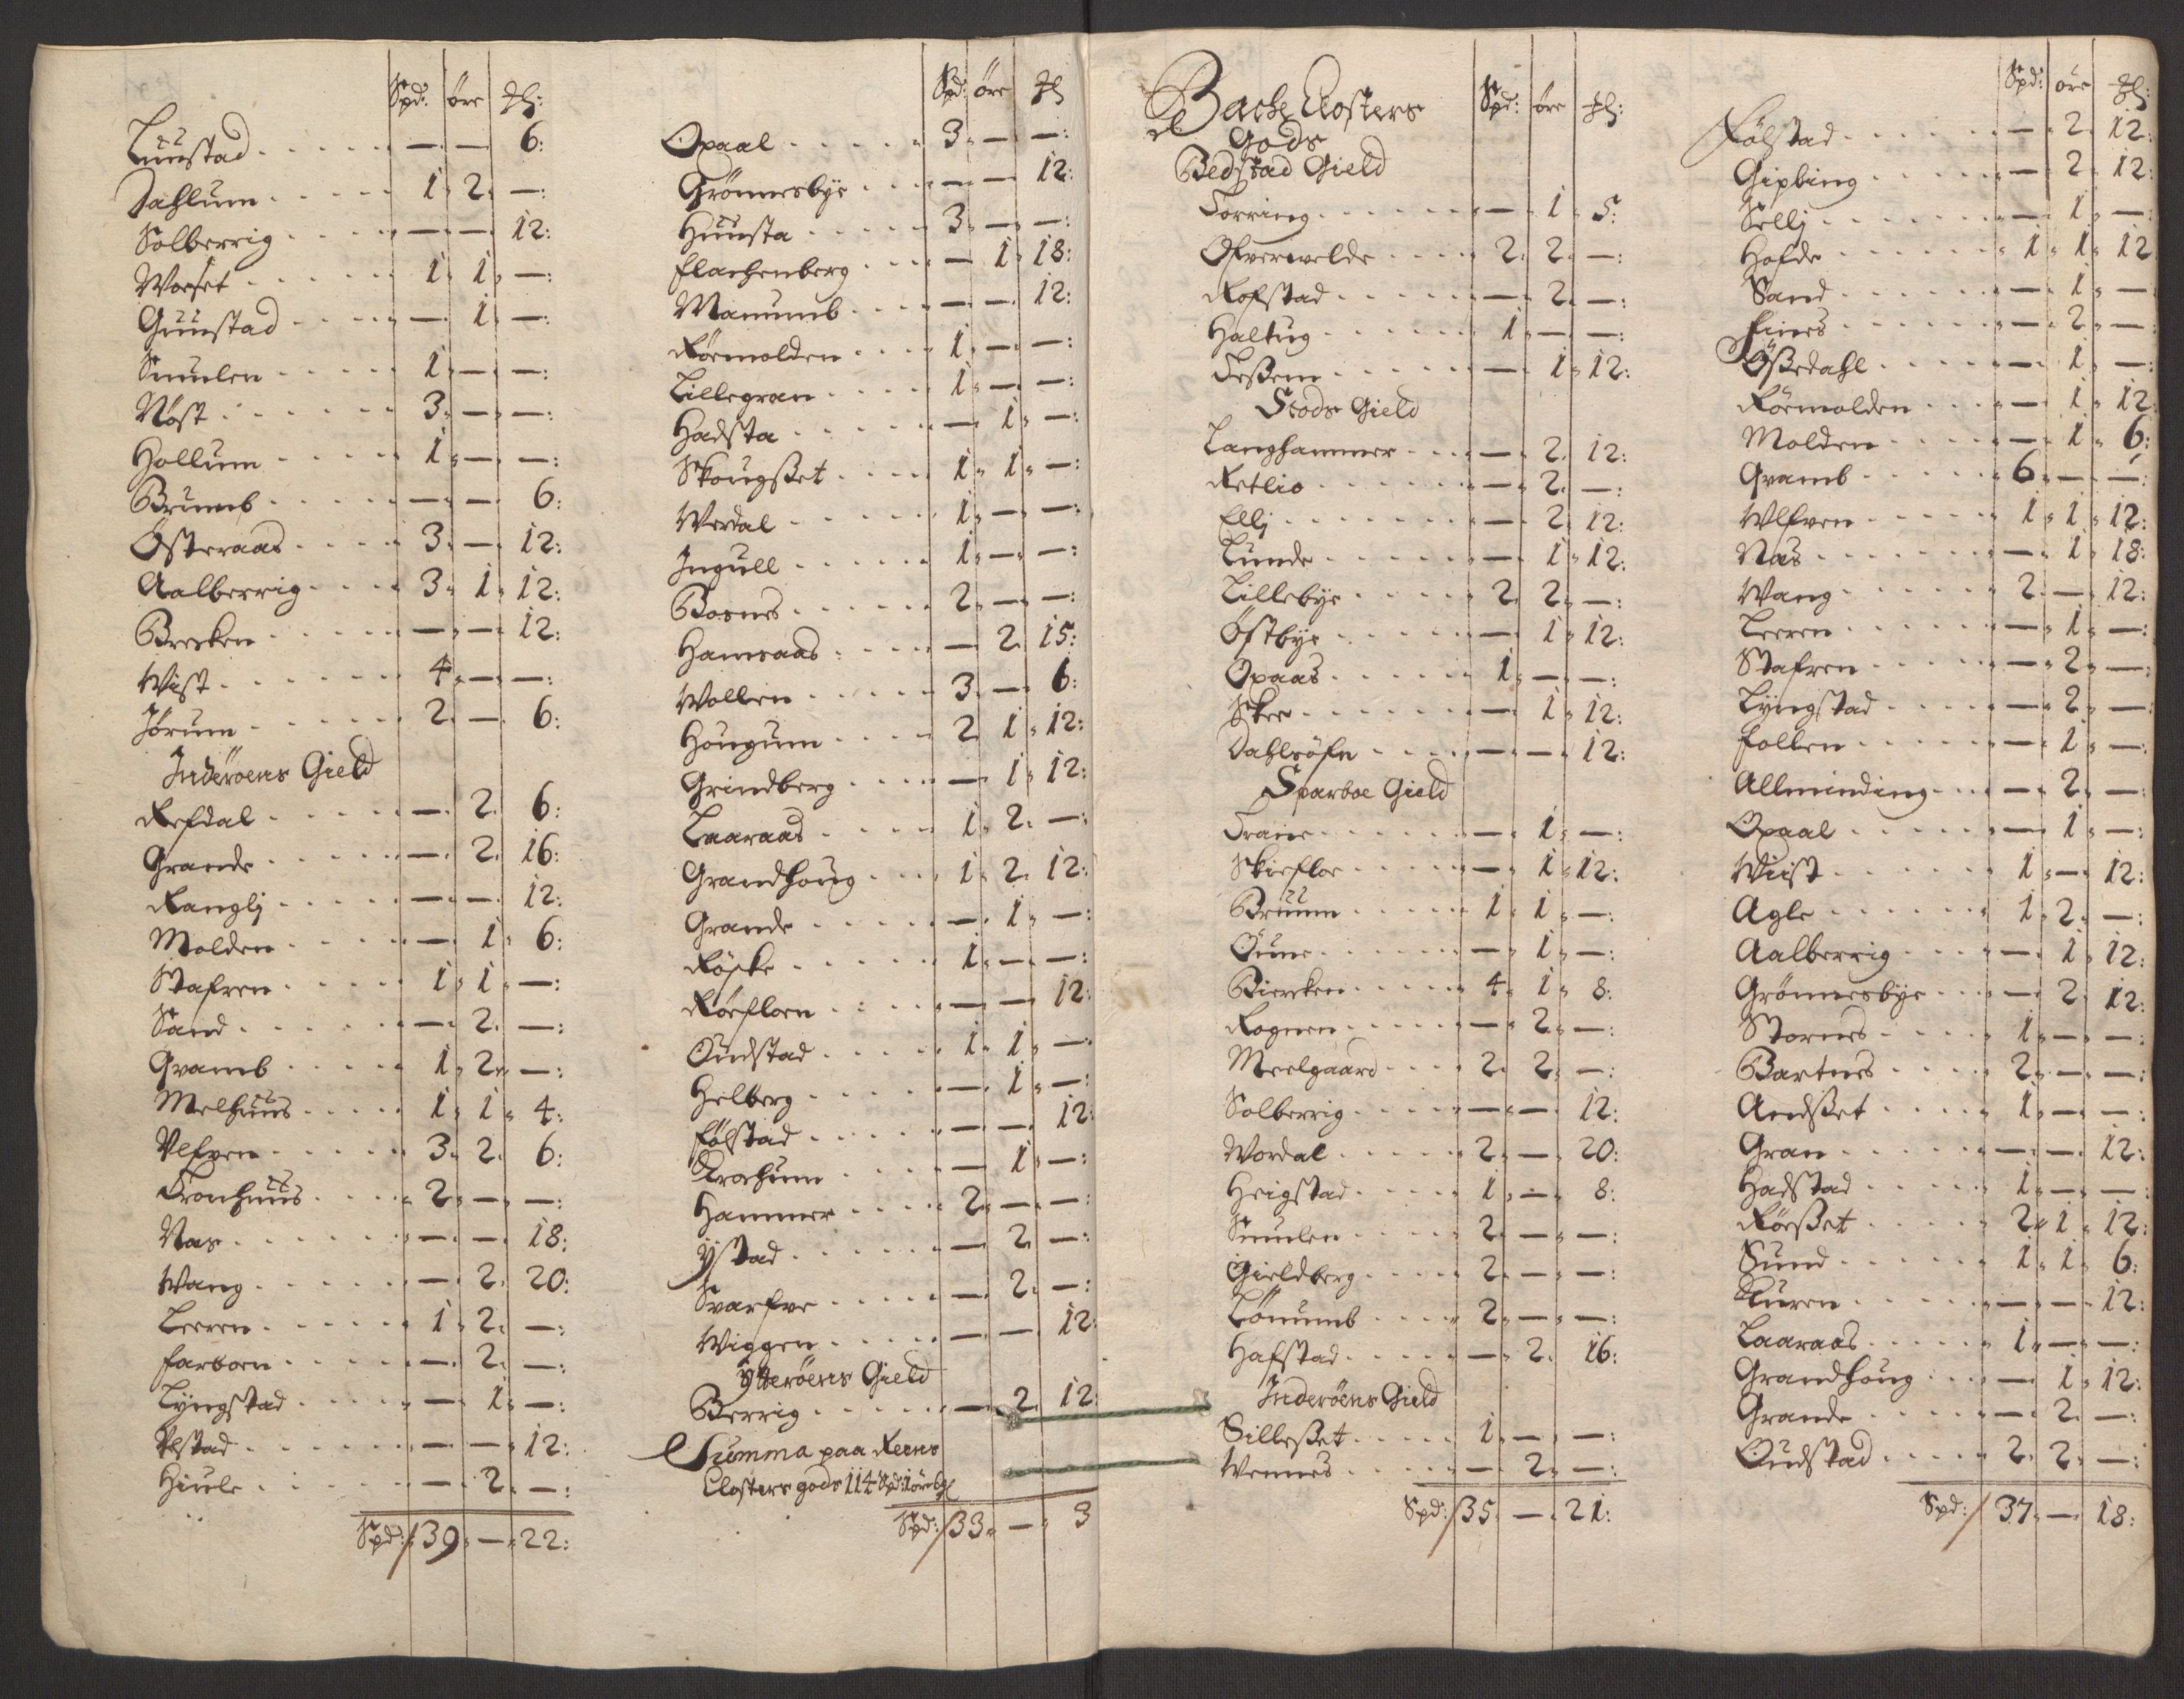 Spd: öre
Luustad — — 6:
Dahlum 1 2 —:
Solberrig — — 12:
Worset 1 1 —:
Guustad — 1 —:
Smulen 1 — —:
Nöst 3 — —:
Hollum 1 — —:
Brumb — — 6:
Österaas 3 — 12:
Aalberrig 3 1 12:
Brecken — — 12:
Wist 4 — —:
Jörum 2 — 6:
Inderöens Gield
Refdal — 2 6:
Grande — 2 16:
Ranglj — — 12:
Molden — 1 6:
Stafren 1 1 —:
Sand — 2 —:
Gramb 1 2 —:
Melhuus 1 1 4:
Vlfven 3 2 6:
Tronhuus 2 — —:
Nas — — 18:
Wang — 2 20:
Leeren 1 2 —:
Farboen — 2 —:
Lyngstad — 1 —:
Vlstad — — 12:
Hiule — 2 —:
Spd: 39 — 22:
Spd: öre
Opaal 3 — —:
Grönnesbye — — 12:
Huusta 3 — —:
Flachenberg — 1 18:
Manumb — — 12:
Röemolden 1 — —:
Lillegran 1 — —:
Hadsta — 1 —:
Skougßet 1 1 —:
Werdal 1 — —:
Ingull 1 — —:
Bosnes 2 — —:
Hameraas — 2 15:
Wollen 3 — 6:
Hougum 2 1 12:
Grindberg — 1 12:
Laaraas 1 2 —:
Grandhoug 1 2 12:
Grande — 1 —:
Röske 1 — —:
Röefloen — — 12:
Oudstad 1 1 —:
Helberg — 1 —:
Fölstad — — 12:
Krochum — 1 —:
Hammer 2 — —:
Ystad — 2 —:
Svarfve — 2 —:
Wiggen — — 12:
Ytteröens Gield
Berrig — 2 12:
Summa paa Reens
Closters gods 114 Spd: 1 öre
Spd: 33 — 3
Bache Closters
Gods
Spd: öre
Bedstad Gield
Torring — 1 5:
Ofverwelde 2 2 —:
Rofstad — 2 —:
Haltug 1 — —:
Teßem — 1 12:
Stods Gield
Langhammer — 2 12:
Retlio — 2 —:
Ellj — 2 12:
Lunde — 1 12:
Lillebye 2 2 —:
Östbye — 1 12:
Opaas 1 — —:
Skee — 1 12:
Dahlsöfn — — 12:
Sparboe Gield
Trane — 1 —:
Skiefloe — 1 12:
Bruum 1 1 —:
Öune — 1 —:
Biereken 4 1 8:
Rognen — 2 —:
Meelgaard 2 2 —:
Solberrig — — 12:
Wordal 2 — 20:
Heigstad 1 — 8:
Smulen 2 — —:
Gieldberg 2 — —:
Lönumb 2 — —:
Hafstad — 2 16:
Inderöens Gield
Silleßet 1 — —:
Wennes — 2 —:
Spd: 35 — 21:
Spd: öre
Fölstad — 2 12:
Gipling — 2 12:
Sellj — 1 —:
Hofde 1 1 12
Sand — 1 —
Fines — 2 —
Ößedahl — 1 —:
Röemolden — 1 12
Molden — 1 6:
Gramb 6 — —:
Wlfven 1 1 12:
Nas — 1 18:
Wang 2 — 12:
Leeren — 1 —:
Stafren — 2 —:
Lyngstad — 2 —
Follen — 1 —:
Allminding — 2 —:
Opaal — 1 —:
Wiist 1 — 12:
Agle 1 2 —:
Aalberrig — 1 12:
Grönnesbye — 2 12:
Stornes 1 — —:
Bartnes 2 — —:
Andßet 1 — —:
Gran — — 12:
Hadstad 1 — —:
Röeßet 2 1 12:
Sund 1 1 6:
Kuren — — 12:
Laaraas 1 — —:
Grandhoug — 1 12:
Grande — 2 —:
Oudstad 2 2 —:
Spd: 37 — 18: